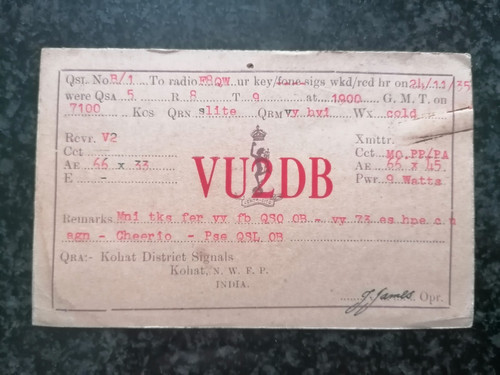 QSL No. B/1 To radio F8QW ur key/fone sigs wkd/rcd hr on 24/11/35
were QSA 5 R 8 T 9 at 1900 G. M. T. on
7100 Kcs QRN slite QRM vy hvi Wx cold
Rcvr. V2 Xmttr.
Cct Cct MO.PP/PA
AE 66 x 33 AE 66 x 45
E - Pwr. 9 Watts
VU2DB
Remarks Mni tks fer vy fb QSO OB - vy 73 es hpe c u
agn - Cheerio - Pse QSL OB
QRA:- Kohat District Signals
Kohat, N. W. F. P.
INDIA.
Opr.